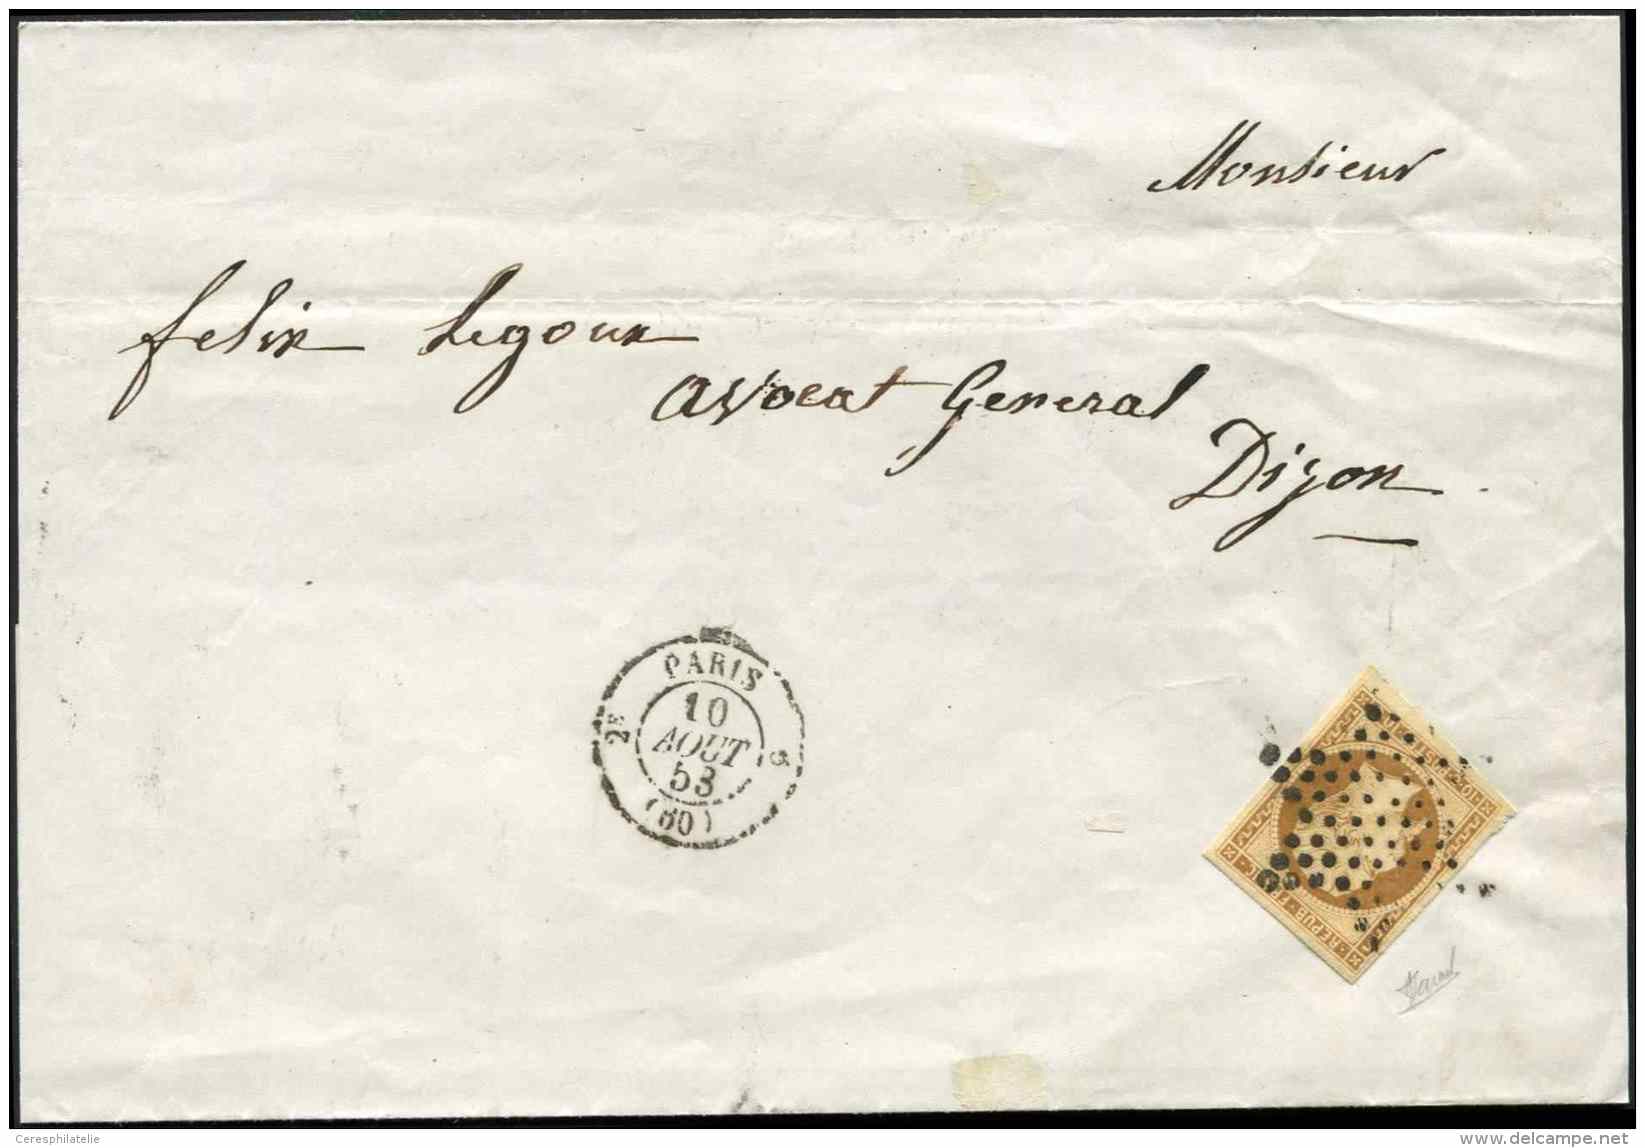 Monsieur
felix Legoux
avocat General
Dijon
PARIS
2E 5
10
AOUT
53
(60)
REPUB FRANC
10 c. POSTES 10 c.
Ceresphilatelie
www.delcampe.net